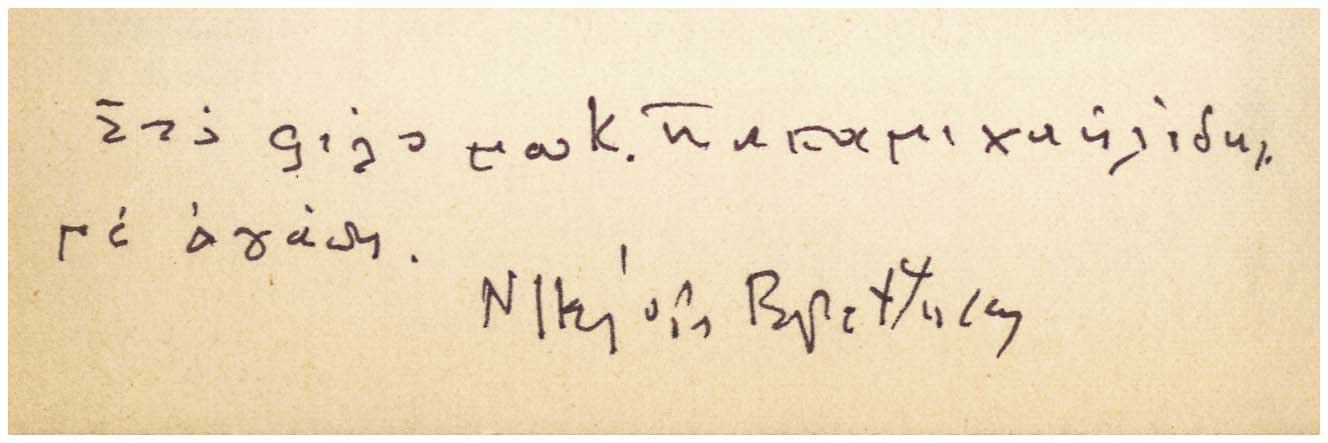 Στό φίλο μου Κ. Παπαμιχαήλίδη,
μέ ἀγάπη.
Νικηφόρος Βρεττάκος